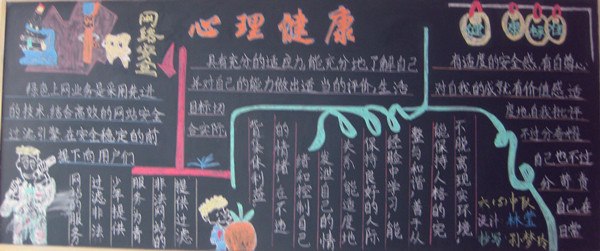 网络安全
绿色上网业务是采用先进
的技术,结合高效的网站安全
过滤引擎,在安全稳定的前
提下向用户们
提供过滤
非法网站的
服务,为青
少年提供
过滤非法
网站的服务
心理健康
具有充分的适应力,能充分地了解自己
并对自己的能力做出适当的评价,生活
目标切
合实际
不脱离现实环境
能保持人格的完
整与和谐,善于从
经验中学习,能
保持良好的人际
关系,能适度地
发泄自己的情
绪和控制自己
的情绪,在不违
背集体利益
健康标准
有适度的安全感,有自尊心
对自我的成就有价值感,适
度地自我批评
不过分夸耀
自己也不过
分苛责
自己,在
日常
六(5)中队
设计
抄写